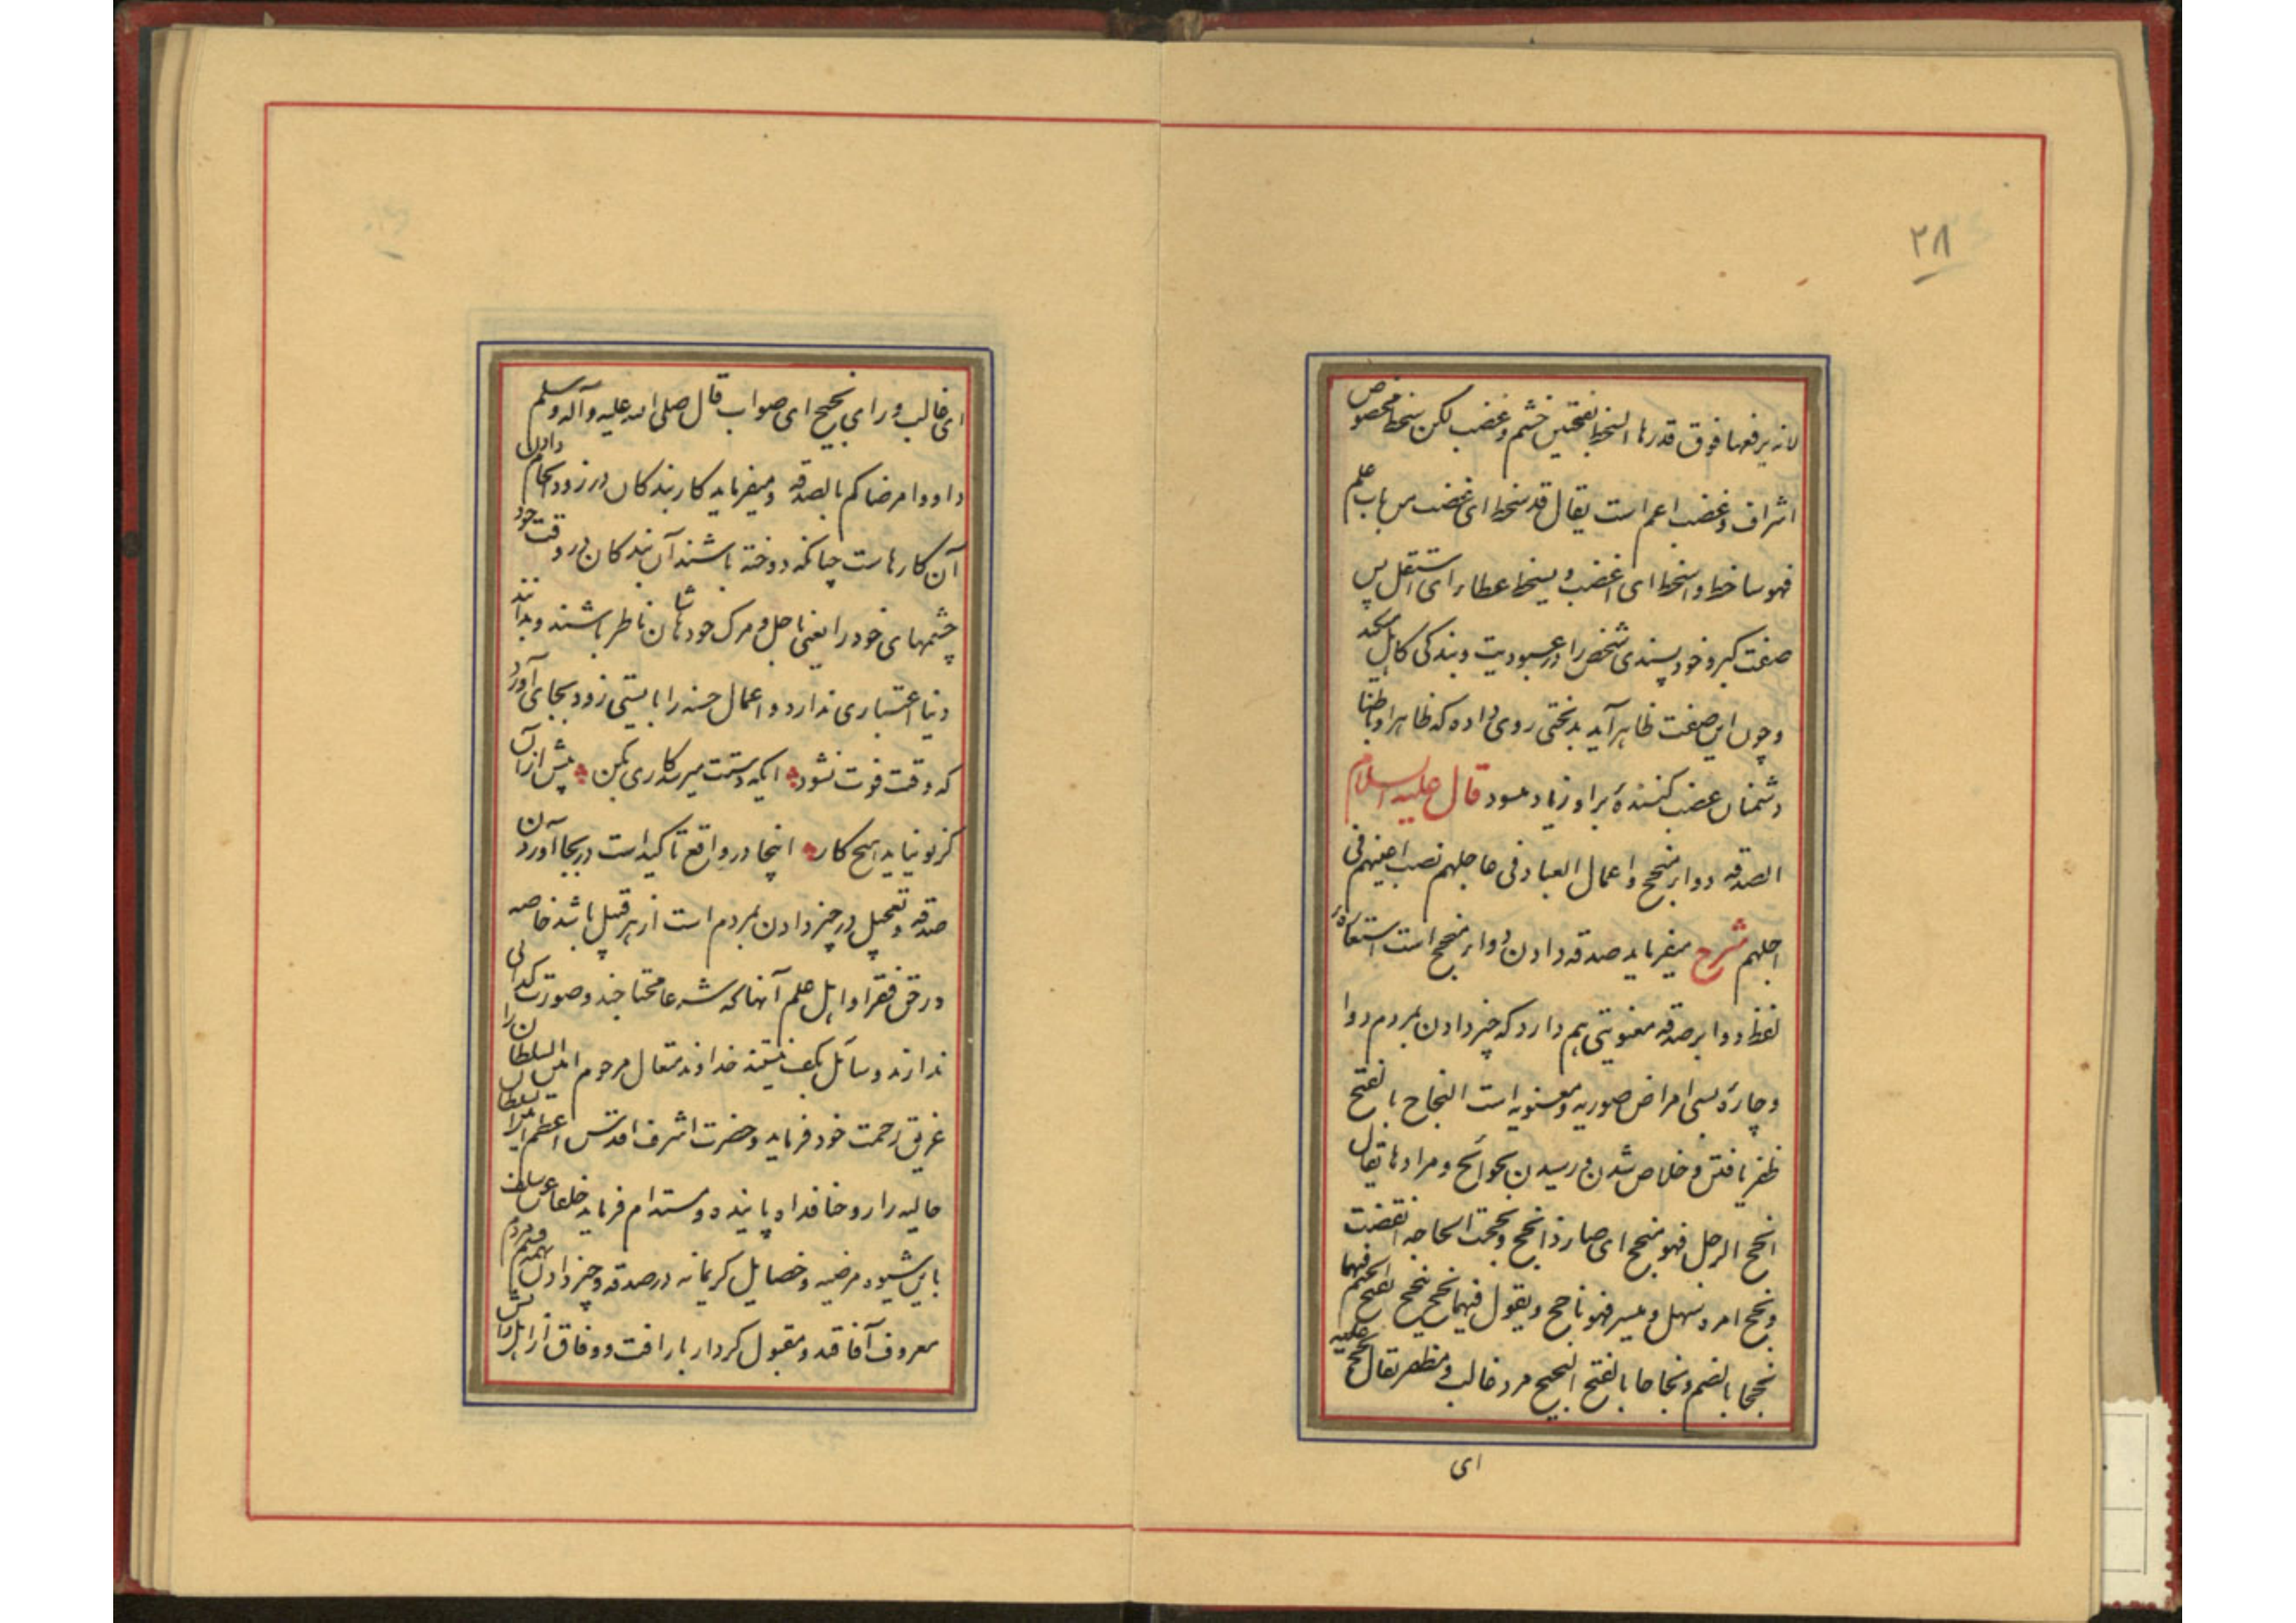 ۲۸
لانه یرفعها فوق قدرها السخط بفتحتین خشم و غضب لکن سخط مخصوص
اشراف و غضب اعم است یقال قد سخط ای غضب من باب علم
فهو ساخط و اسخط ای اغضب و یسخط عطاء ای استقل پس
صفت کبر و خود پسندی شخص را در عبودیت و بندکی کاهل میکند
و چون این صفت ظاهر آید بدبختی روی داده که ظاهرا و باطنا
دشمنان غضب کننده بر او زیاد میشود قال علیه السلام
الصدقه دواء منجح و اعمال العباد فی عاجلهم نصب اعینهم فی
اجلهم شرح میفرماید صدقه دادن دواء منجح است استعاره
لفظ دوا بر صدقه معنویتی هم دارد که چیز دادن بمردم دوا
و چاره بسی امراض صوریه و معنویه است النجاح بالفتح
ظفر یافتن و خلاص شدن و رسیدن بحوائج و مرادها یقال
انجح الرجل فهو منجح ای صار ذا نجح و نجحت الحاجه انقضت
و نجح امره سهل و یسر فهو ناجح و یقول فیهما نجح ینجح بفتح الجیم فیهما
نجحا بالضم و نجاحا بالفتح النجیح مرد غالب و مظفر یقال نجح علیه
ای
ای غالب و رای نجیح ای صواب قال صلی الله علیه و آله و سلم
داووا مرضاکم بالصدقه و میفرماید کار بندکان در زود انجام دادن
آن کارهاست چنانکه دوخته باشند آن بندکان در وقت خود
چشمهای خود را یعنی باجل و مرک خودشان ناظر باشند و بدانند
دنیا اعتباری ندارد و اعمال حسنه را بایستی زود بجای آورد
که وقت فوت نشود ایکه دستت میرسد کاری بکن پیش از آن
کز تو نیاید هیچ کار اینجا در واقع تاکید است در بجا آوردن
صدقه و تعجیل در چیز دادن بمردم است از هر قبیل باشد خاصه
در حق فقرا و اهل علم آنهائیکه شرعا محتاجند و صورت کدائی
ندارند و سائل بکف نیستند خداوند متعال مرحوم امین السلطان را
غریق رحمت خود فرماید و حضرت اشرف اقدس اعظم امین السلطان
حالیه را روحنا فداه پاینده و مستدام فرماید خلفا عن سلف
باین شیوه مرضیه و خصایل کریمانه در صدقه و چیز دادن بهمه قسم مردم
معروف آفاقند و مقبول کردار با رافت و وفاق از اهل دانش